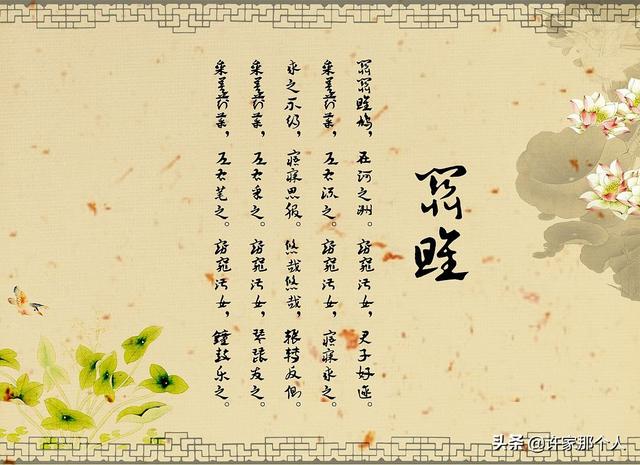 關雎
關關雎鳩，在河之洲。窈窕淑女，君子好逑。
參差荇菜，左右流之。窈窕淑女，寤寐求之。
求之不得，寤寐思服。悠哉悠哉，輾轉反側。
參差荇菜，左右采之。窈窕淑女，琴瑟友之。
參差荇菜，左右芼之。窈窕淑女，鐘鼓乐之。
头条 @许家那个人